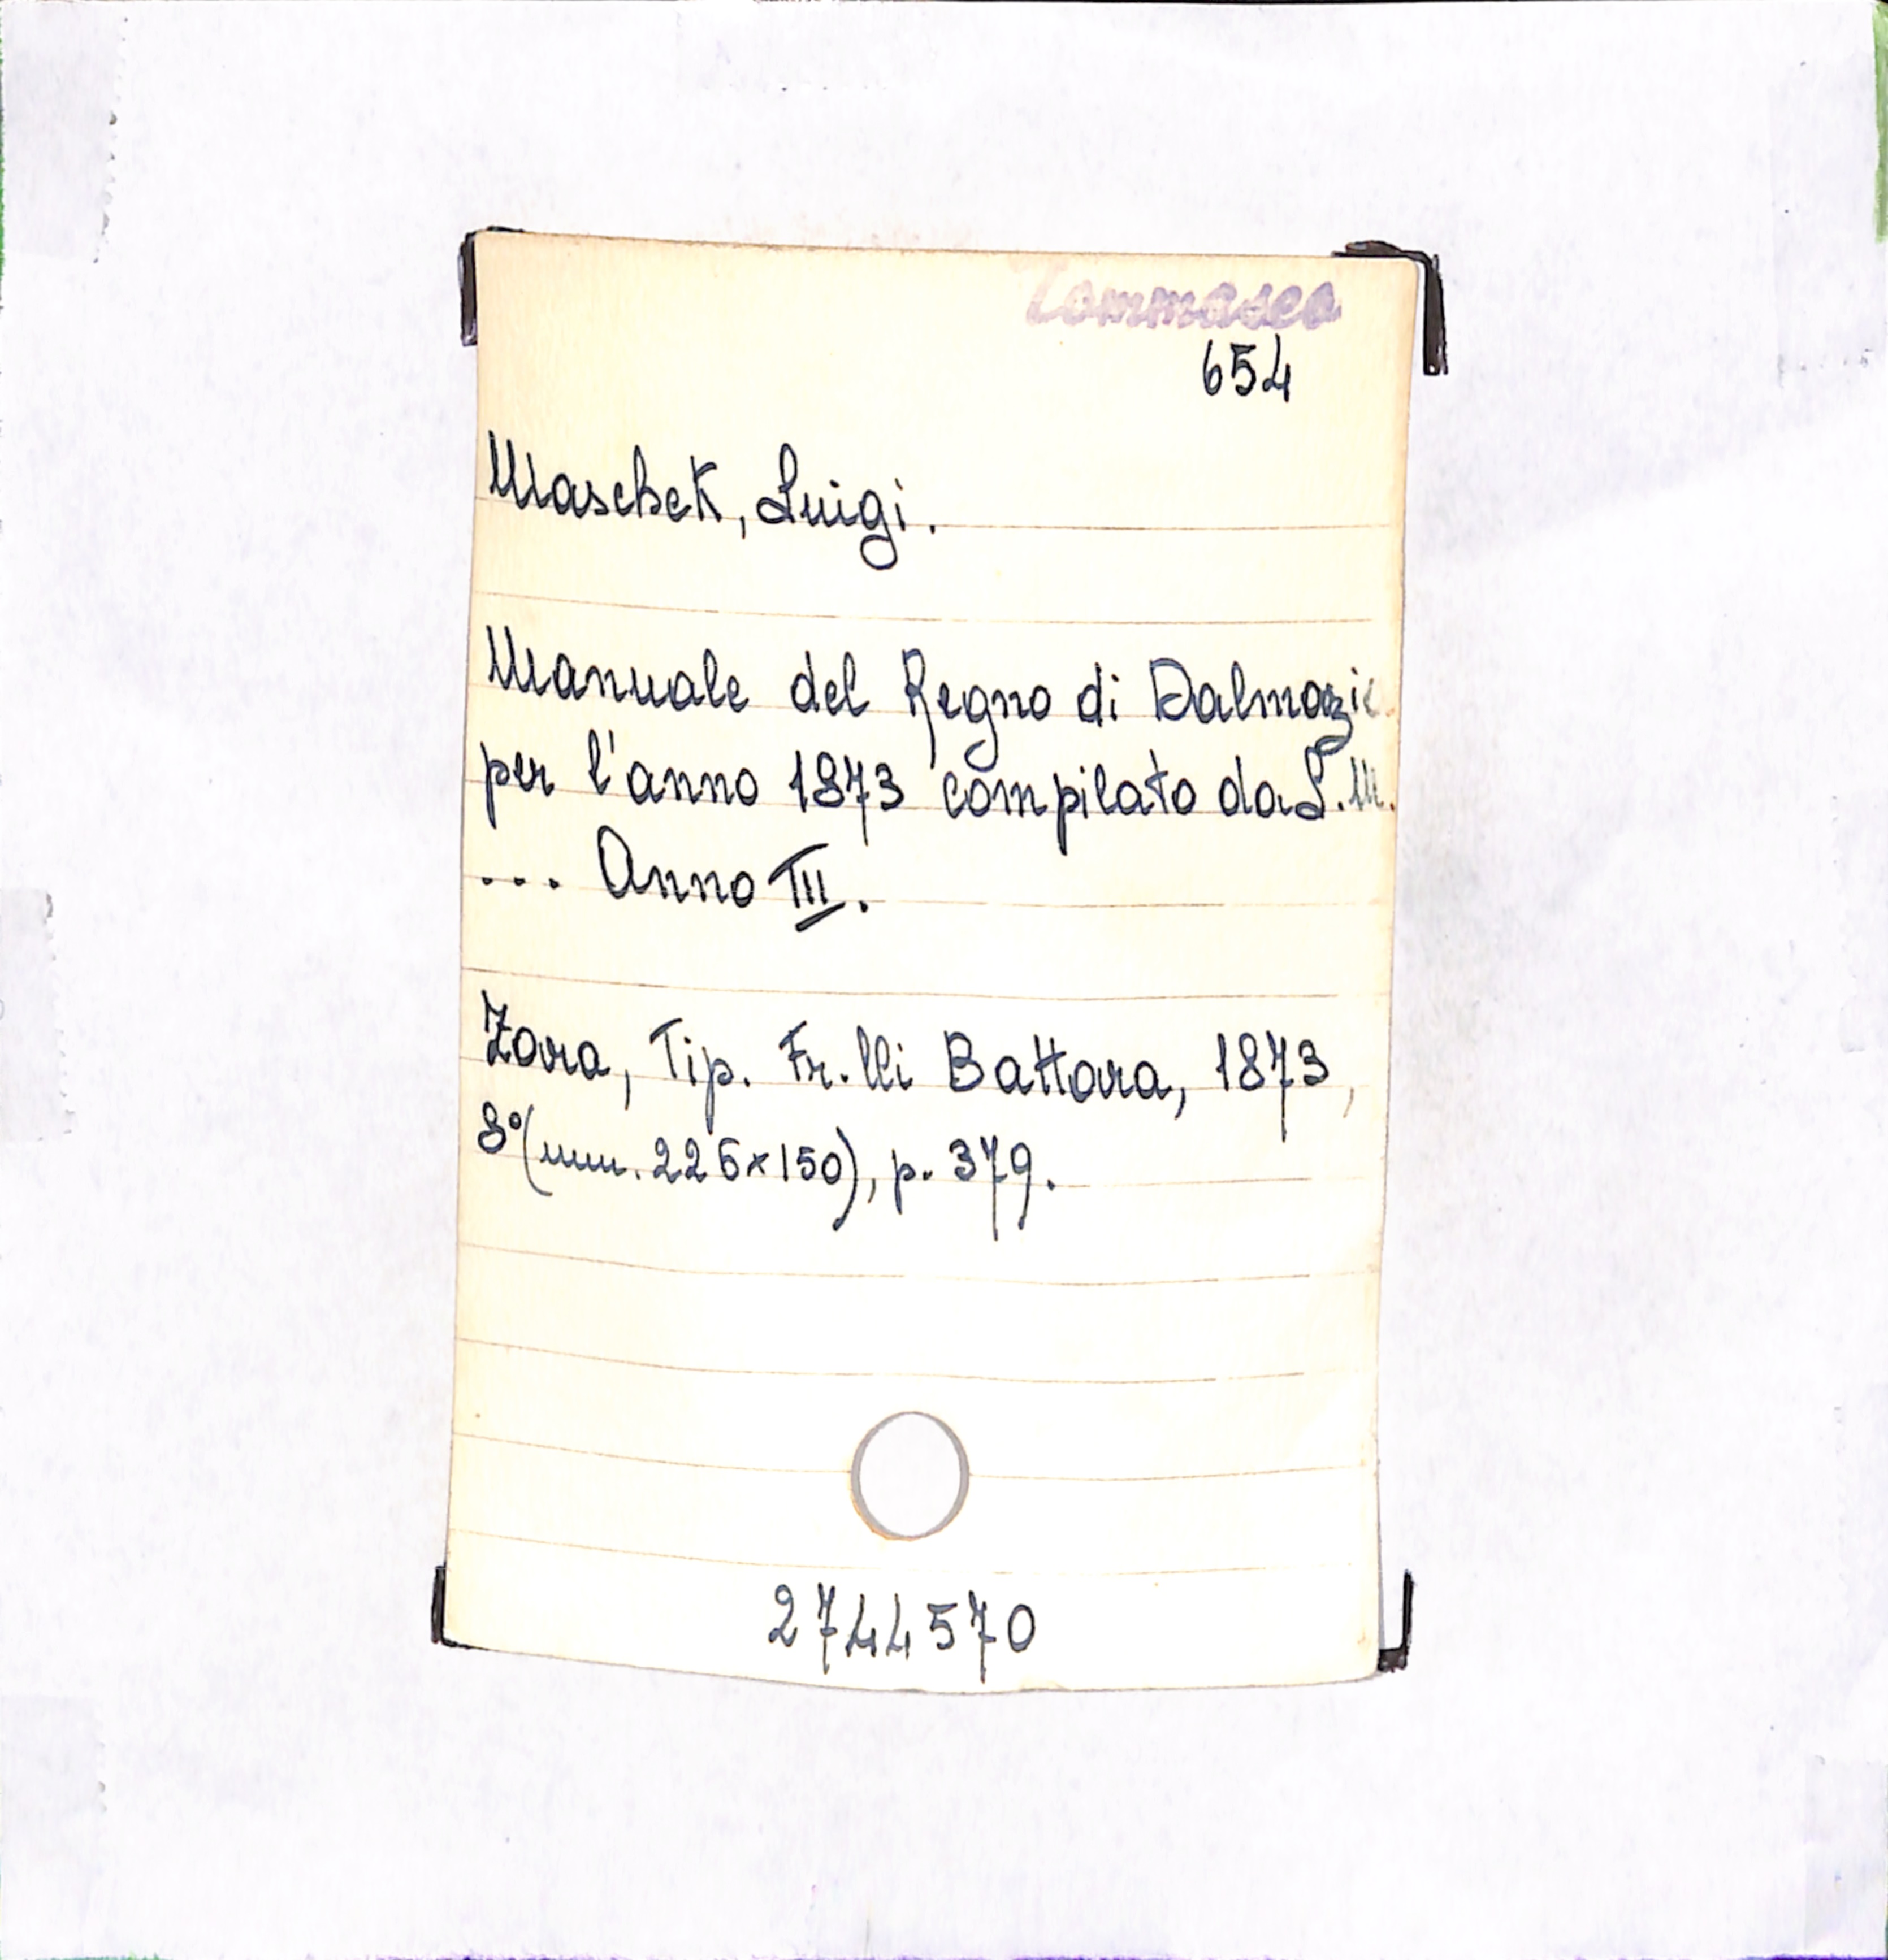 Tommaseo
654
Maschek, Luigi.
Manuale del Regno di Dalmazia
per l'anno 1873 compilato da L.M.
... Anno III.
Zara, Tip. Fr.lli Battara, 1873,
8°(mm. 226×150), p. 379.
2744570